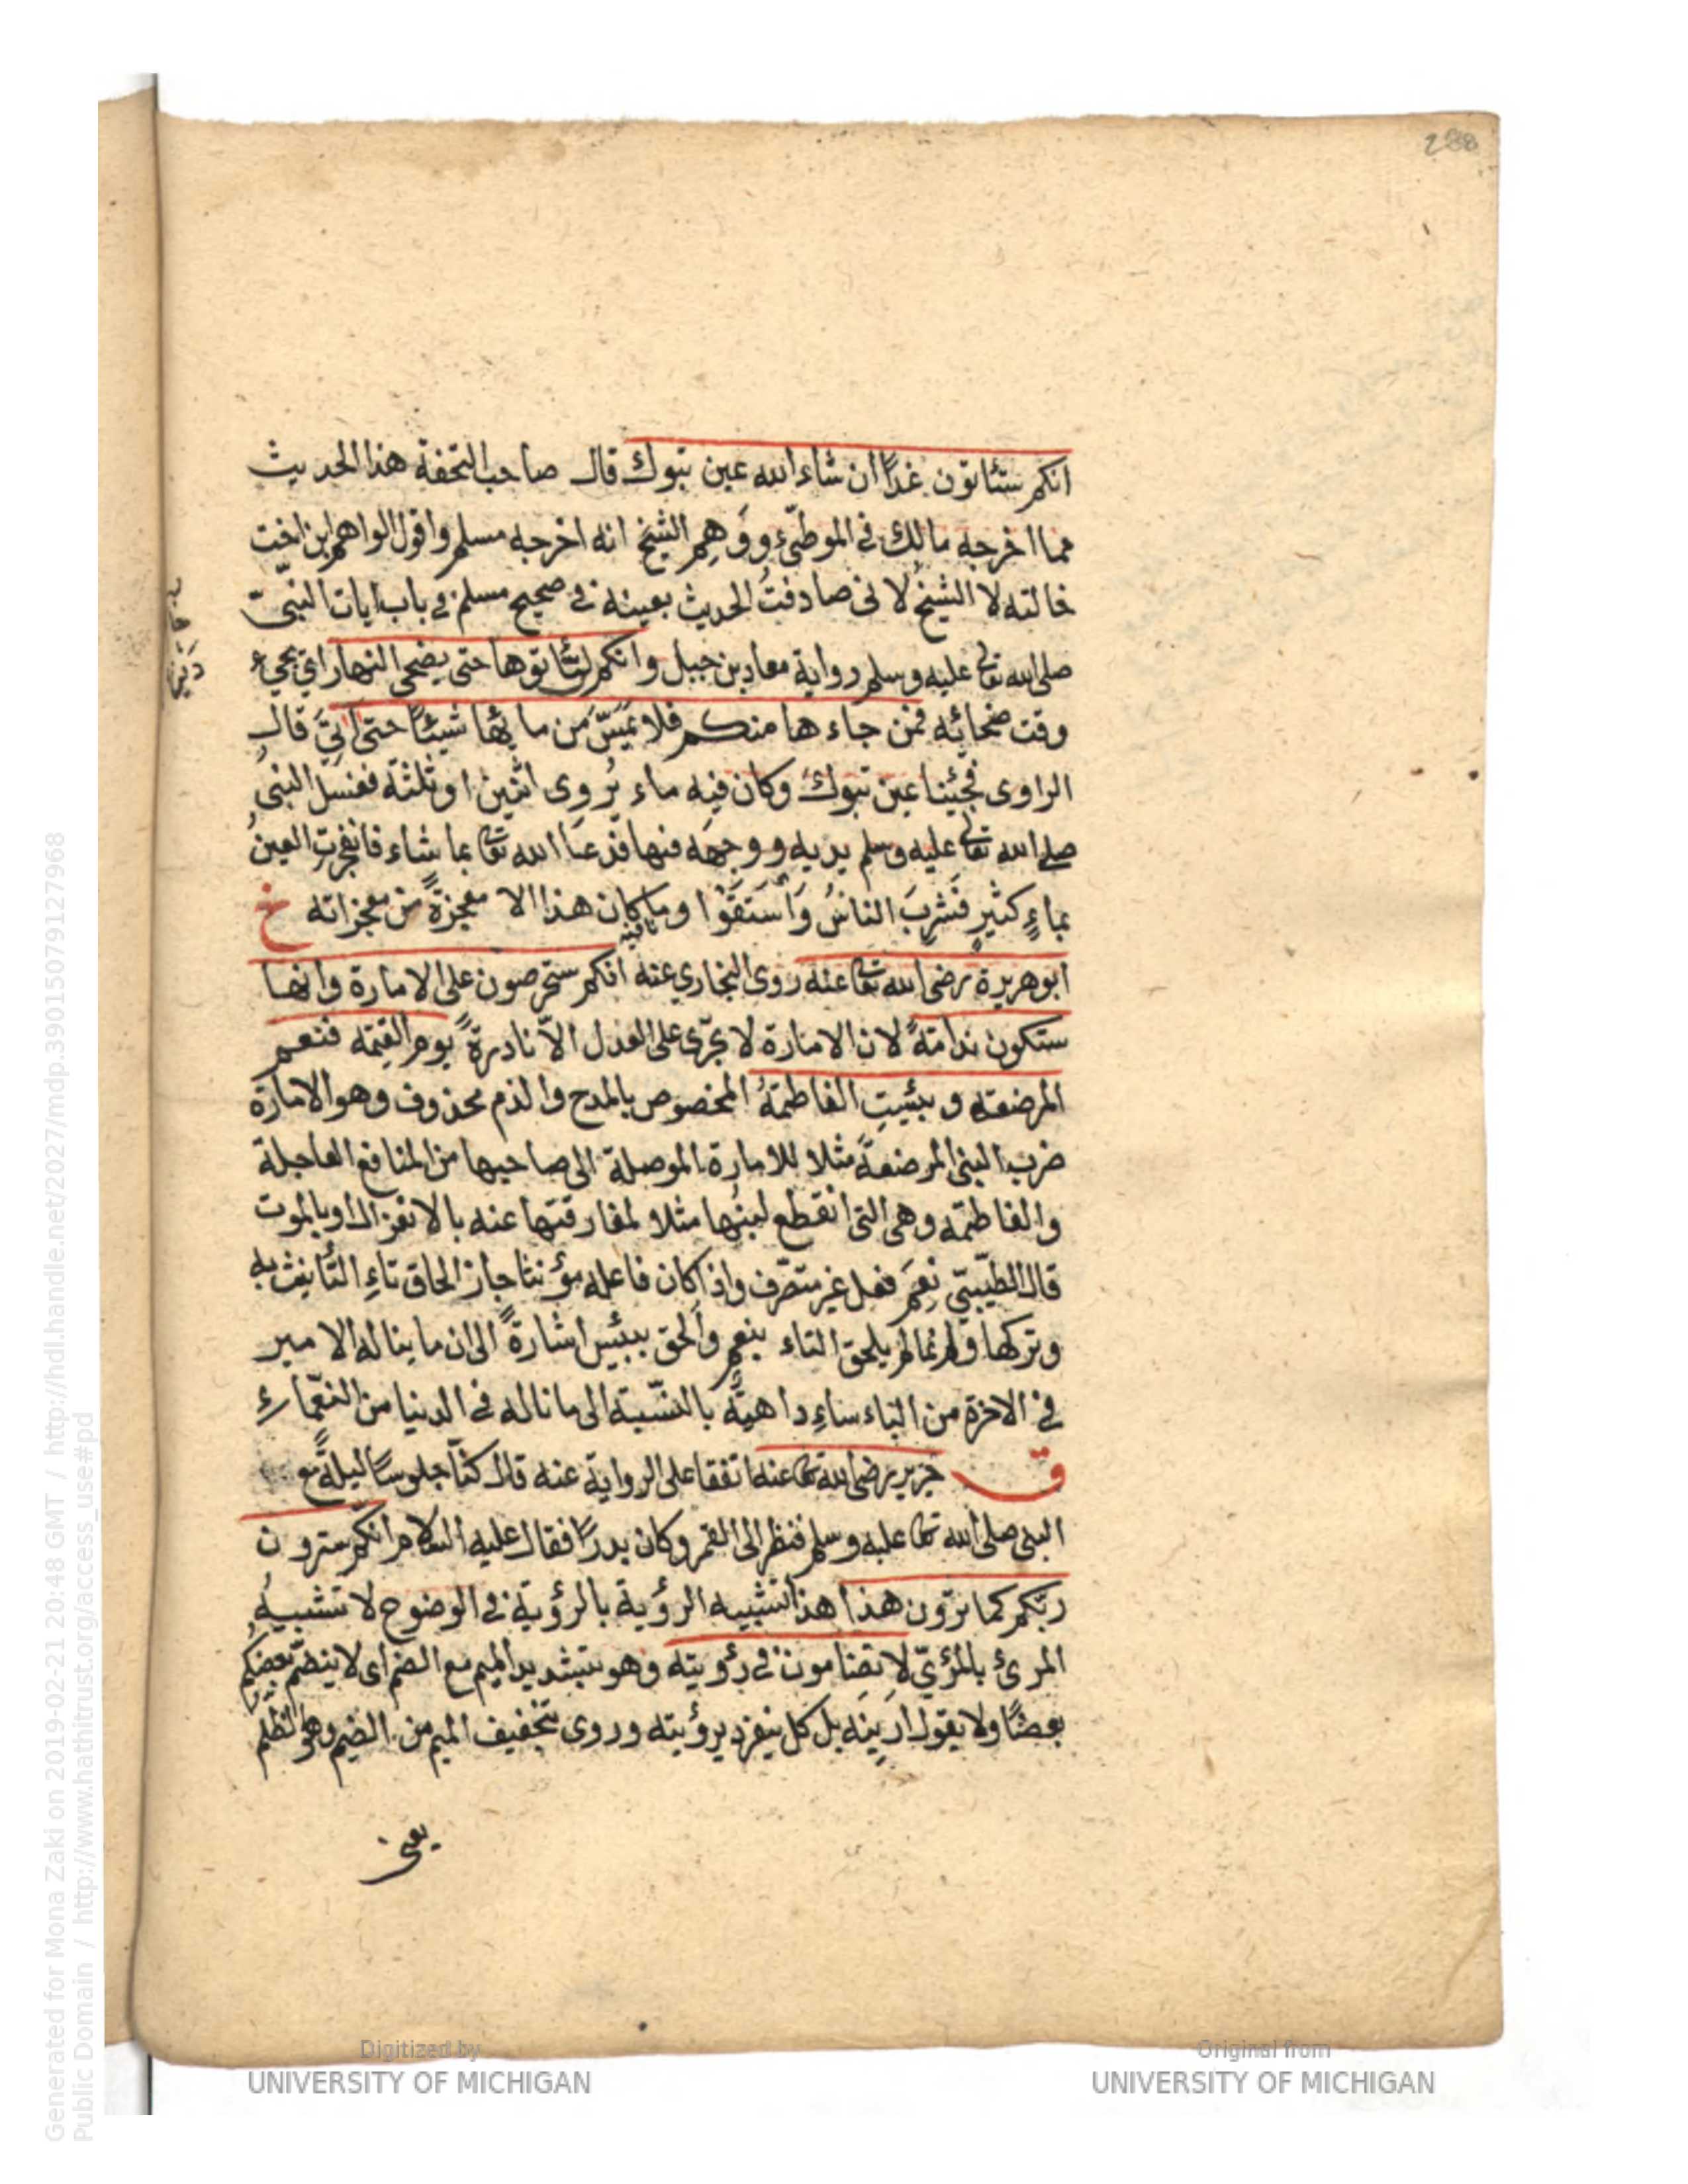 288
انكم ستئاتون غدًا ان شاء الله عين تبوك قال صاحب التحفة هذا الحديث
مما اخرجه مالك في الموطّیء ووَهِم الشيخ انه اخرجه مسلم واقول الواهم ابن اخت
خالته لا الشيخُ لانى صادفتُ الحديث بعينه فى صحيح مسلم فى باب ايات النبىّ
صلى الله تعالى عليه وسلم رواية معاذ بن جبل وانكم لن تئاتوها حتى يضحى النهار اى يجىء
وقت ضحائه فمن جاءها منكم فلا يمسّ من مائها شيئًا حتى اٰتىَ قال
الراوى فجئنا عين تبوك وكان فيه ماء يُروى اثنين او ثلثة فغسل النبىُ
صلى الله تعالى عليه وسلم يديه ووجهَه فيها فدعا الله تعالى بما شاء فانفجرتِ العينُ
بماءٍ كثيرٍ فشَرِبَ الناسُ وَاسْتَقَوْا وما كان هذا الا معجزةً من معجزاته خ
ابو هريرة رضى الله تعالى عنه روى البخارى عنه انكم ستحرصون على الامارة وانها
ستكون ندامةً لان الامارة لا تجرى على العدل الاّ نادرةً يوم القيٰمة فنعم
المرضعة وبئستِ الفاطمةُ المخصوص بالمدح والذم محذوف وهو الامارة
ضرب النبى المرضعةَ مثلا للامارة الموصلة الى صاحبها من المنافع العاجلة
والفاطمة وهى التى انقطع لبنُها مثلا لمفارقتها عنه بالانعزال او بالموت
قال الطيّبىّ نِعمَ فعل غير متصرّف واذا كان فاعله مؤنثا جاز الحاق تاءِ التأنيث به
وتركها وانما لم يلحق التاء بنعم والحق ببئس اشارةً الى ان ما يناله الامير
فى الاخرة من الباساءِ داهيةٌ بالنسّبة الى ما ناله فى الدنيا من النعّماءِ
ق جرير رضى الله تعالى عنه اتفقا على الرواية عنه قال كنّا جلوسًا ليلةً مع
النبى صلى الله تعالى عليه وسلم فنظر الى القمر وكان بدرًا فقال عليه السلام انكم سترون
ربّكم كما ترون هذا هذا تشبيه الرؤية بالرؤية فى الوضوح لا تشبيهُ
المرئ بالمرئىّ لا تضامون فى رؤيته وهو بتشديد الميم مع الضم اى لا ينضمّ بعضُكم
بعضًا ولا يقول ارِينهِ بل كل ينفرد برؤيته وروى بتخفيف الميم من الضيم وهو الظلم
يعنى
Digitized by
UNIVERSITY OF MICHIGAN
Original from
UNIVERSITY OF MICHIGAN
Generated for Mona Zaki on 2019-02-21 20:48 GMT / http://hdl.handle.net/2027/mdp.39015079127968
Public Domain / http://www.hathitrust.org/access_use#pd